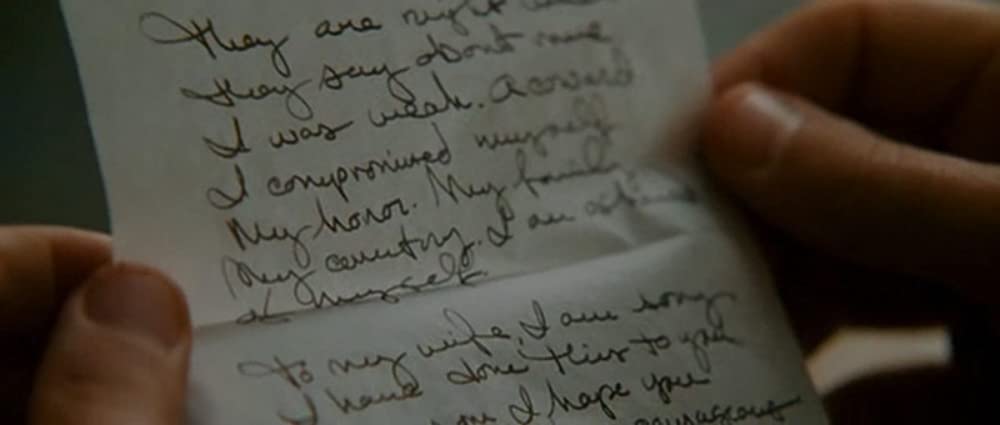 They are right
they say about me
I was weak. A coward
I compromised myself
My honor. My family.
My country. I am ashamed
of myself.
To my wife, I am sorry
I have done this to you
I hope you
courageous